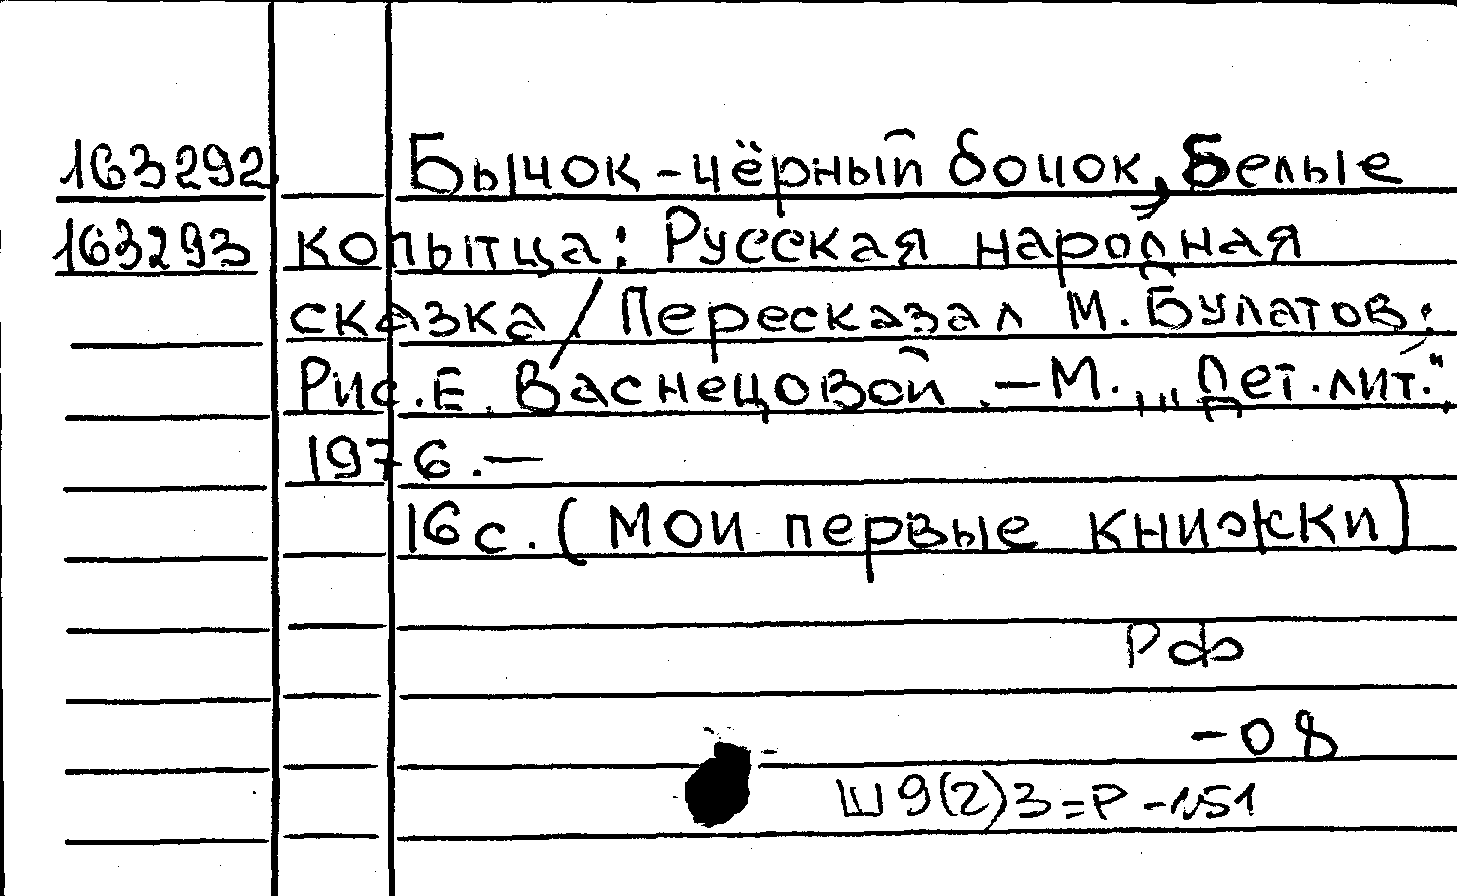 163292 Бычок-чёрный бочок, Белые
163293 копытца: Русская народная
сказка / Пересказал М. Булатов;
Рис. Е. Васнецовой. - М., "Дет. лит.",
1976. -
16 с. (Мои первые книжки)
РФ
-08
Ш9(2)3=Р-